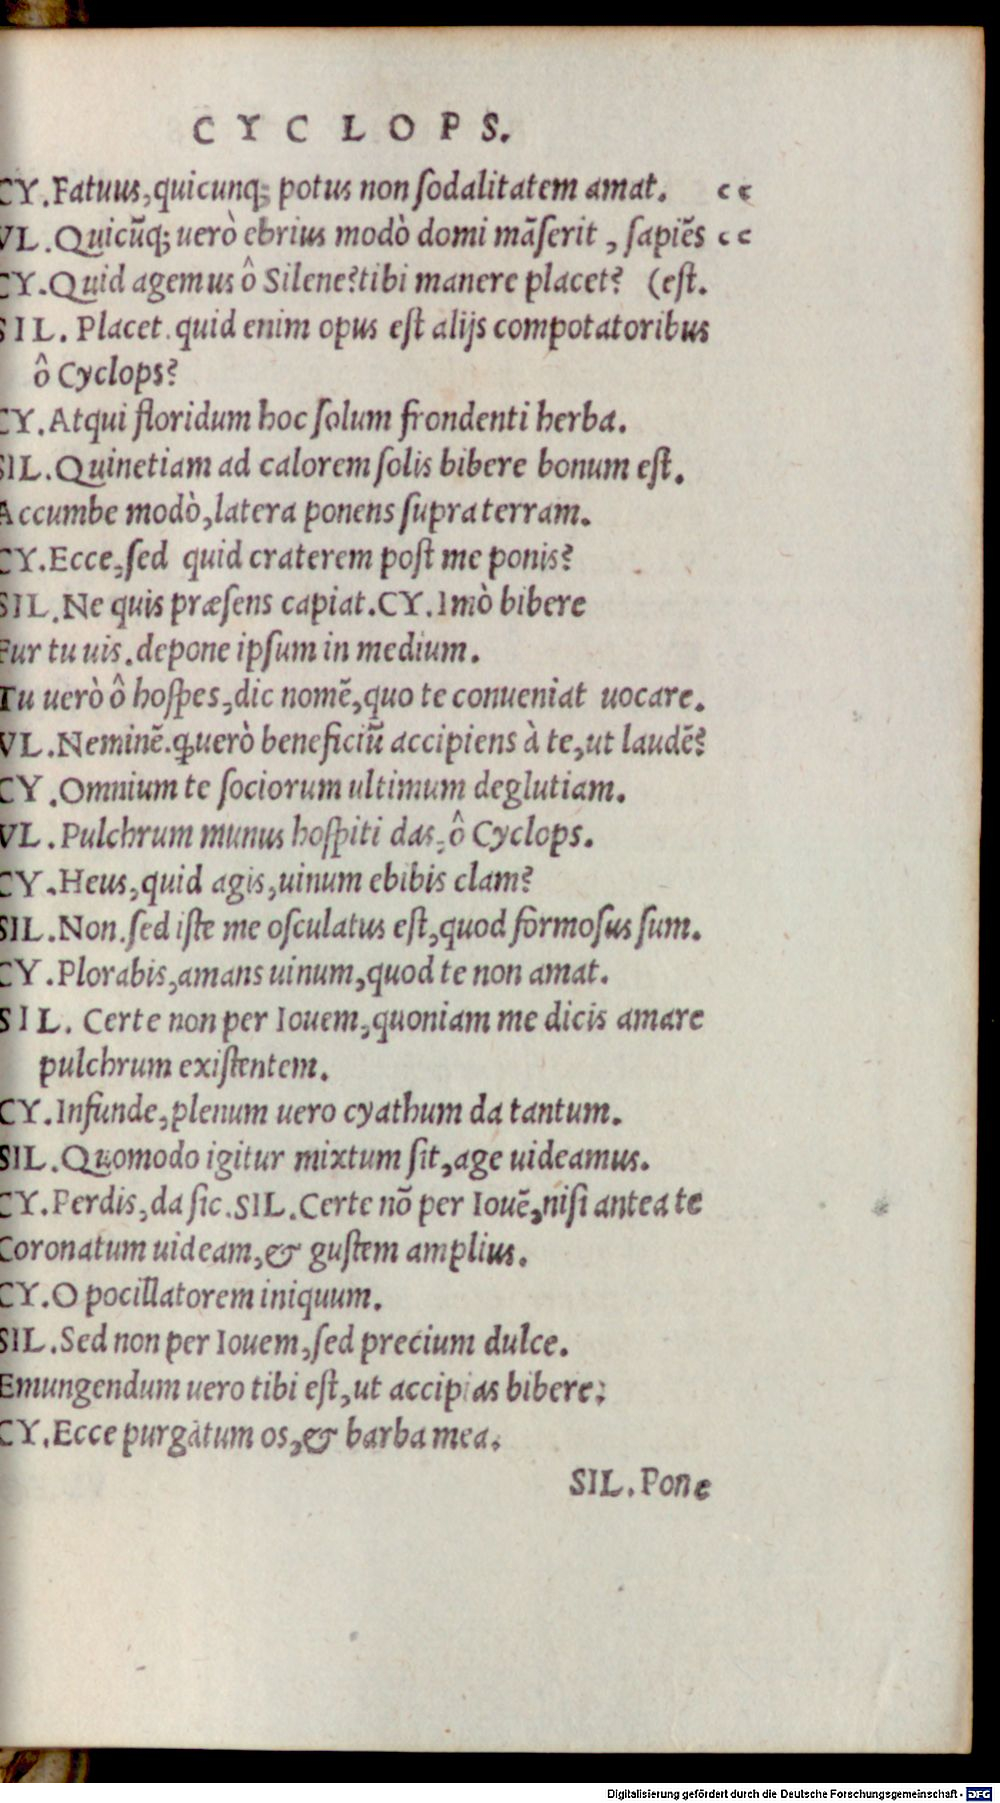 CYCLOPS.
CY. Fatuus, quicunq; potus non ſodalitatem amat. cc
VL. Quicũq; uerò ebrius modò domi mãſerit, ſapiẽs cc
CY. Quid agemus ô Silene? tibi manere placet? (eſt.
SIL. Placet. quid enim opus eſt alijs compotatoribus
ô Cyclops?
CY. Atqui floridum hoc ſolum frondenti herba.
SIL. Quinetiam ad calorem ſolis bibere bonum eſt.
Accumbe modò, latera ponens ſupra terram.
CY. Ecce, ſed quid craterem poſt me ponis?
SIL. Ne quis præſens capiat. CY. Imò bibere
Fur tu uis. depone ipſum in medium.
Tu uerò ô hoſpes, dic nomẽ, quo te conueniat uocare.
VL. Neminẽ. ꝗ uerò beneficiũ accipiens à te, ut laudẽ?
CY. Omnium te ſociorum ultimum deglutiam.
VL. Pulchrum munus hoſpiti das, ô Cyclops.
CY. Heus, quid agis, uinum ebibis clam?
SIL. Non. ſed iſte me oſculatus eſt, quod formoſus ſum.
CY. Plorabis, amans uinum, quod te non amat.
SIL. Certe non per Iouem, quoniam me dicis amare
pulchrum exiſtentem.
CY. Infunde, plenum uero cyathum da tantum.
SIL. Quomodo igitur mixtum ſit, age uideamus.
CY. Perdis, da ſic. SIL. Certe nõ per Iouẽ, niſi antea te
Coronatum uideam, & guſtem amplius.
CY. O pocillatorem iniquum.
SIL. Sed non per Iouem, ſed precium dulce.
Emungendum uero tibi eſt, ut accipias bibere:
CY. Ecce purgatum os, & barba mea.
SIL. Pone
Digitalisierung gefördert durch die Deutsche Forschungsgemeinschaft - DFG